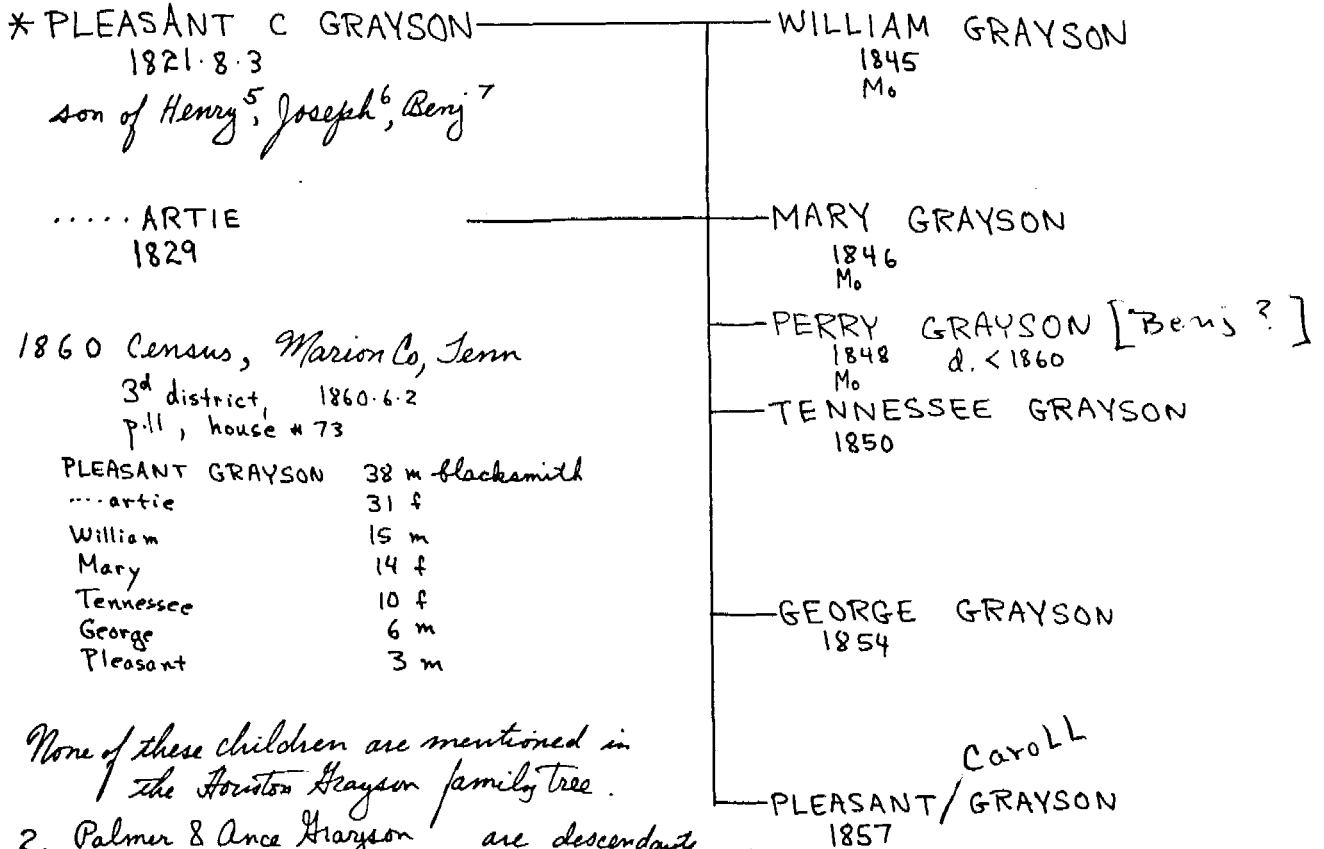 * PLEASANT C GRAYSON
1821.8.3
son of Henry⁵, Joseph⁶, Benj⁷
..... ARTIE
1829
1860 Census, Marion Co, Tenn
3d district, 1860.6.2
p.11, house # 73
PLEASANT GRAYSON 38 m blacksmith
.... artie 31 f
William 15 m
Mary 14 f
Tennessee 10 f
George 6 m
Pleasant 3 m
None of these children are mentioned in
the Houston Grayson family tree.
2. Palmer & Ance Grayson are descendants
WILLIAM GRAYSON
1845
Mo
MARY GRAYSON
1846
Mo
PERRY GRAYSON [Benj ?]
1848 d. < 1860
Mo
TENNESSEE GRAYSON
1850
GEORGE GRAYSON
1854
Caroll
PLEASANT / GRAYSON
1857